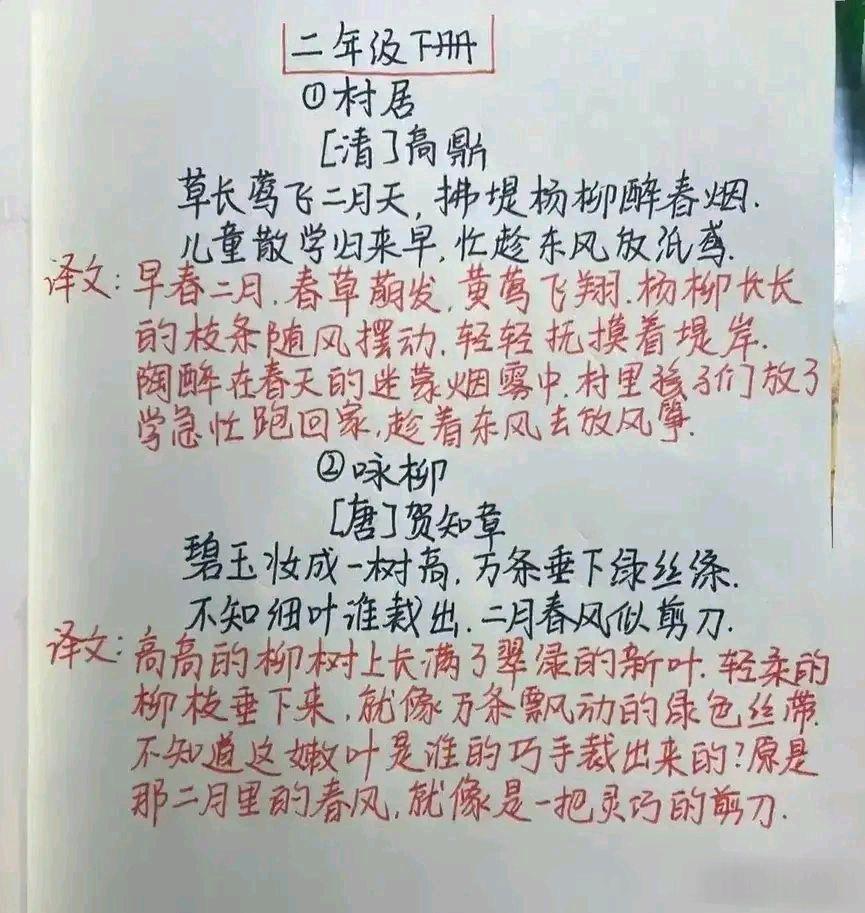 二年级下册
①村居
[清]高鼎
草长莺飞二月天,拂堤杨柳醉春烟.
儿童散学归来早,忙趁东风放纸鸢.
译文:早春二月,春草萌发,黄莺飞翔.杨柳长长
的枝条随风摆动,轻轻抚摸着堤岸.
陶醉在春天的迷蒙烟雾中.村里孩子们放了
学急忙跑回家,趁着东风去放风筝.
②咏柳
[唐]贺知章
碧玉妆成一树高,万条垂下绿丝绦.
不知细叶谁裁出,二月春风似剪刀.
译文:高高的柳树上长满了翠绿的新叶.轻柔的
柳枝垂下来,就像万条飘动的绿色丝带.
不知道这嫩叶是谁的巧手裁出来的?原是
那二月里的春风,就像是一把灵巧的剪刀.